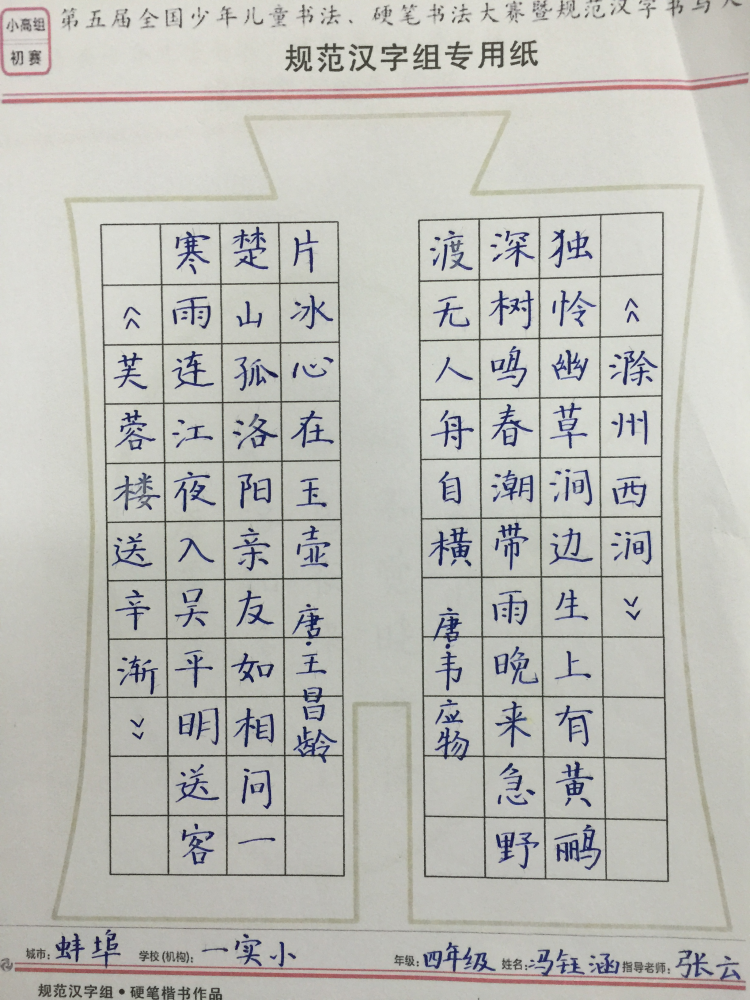 小高组
初赛
第五届全国少年儿童书法、硬笔书法大赛暨规范汉字书写
规范汉字组专用纸
《滁州西涧》
独怜幽草涧边生上有黄鹂
深树鸣春潮带雨晚来急野
渡无人舟自横 唐·韦应物
《芙蓉楼送辛渐》
寒雨连江夜入吴平明送客
楚山孤洛阳亲友如相问一
片冰心在玉壶 唐·王昌龄
城市：蚌埠 学校(机构)：一实小 年级：四年级 姓名：冯钰涵 指导老师：张云
规范汉字组·硬笔楷书作品